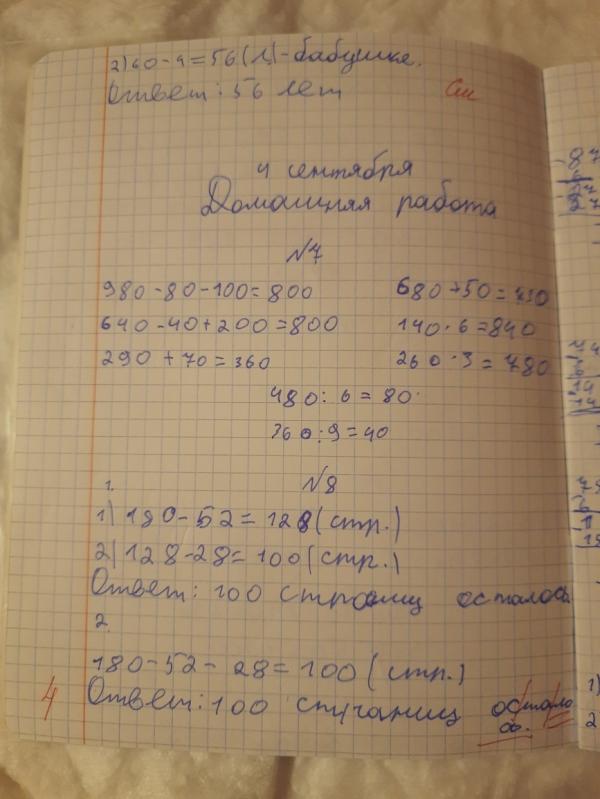 2) 60 - 4 = 56 (л) - бабушке.
Ответ: 56 лет
См
4 сентября
Домашняя работа
№7
980 - 80 - 100 = 800
680 + 50 =
640 - 40 + 200 = 800
140 · 6 = 840
290 + 70 = 360
260 · 3 = 780
480 : 6 = 80
360 : 9 = 40
№8
1.
1) 180 - 52 = 128 (стр.)
2) 128 - 28 = 100 (стр.)
Ответ: 100 страниц осталось
2.
180 - 52 - 28 = 100 (стр.)
4
Ответ: 100 остало
сь.